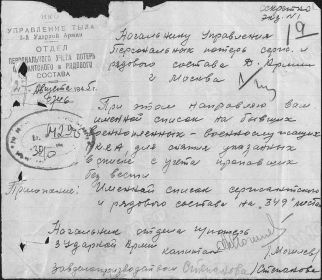 Секретно
экз. N 1
НКО
УПРАВЛЕНИЕ ТЫЛА
3-й Ударной Армии
ОТДЕЛ
ПЕРСОНАЛЬНОГО УЧЕТА ПОТЕРЬ
СЕРЖАНТСКОГО и РЯДОВОГО
СОСТАВА
Августа 1945 г.
Начальнику Управления
Персональных потерь серж. и
рядового состава К. Армии
г Москва
При этом направляю вам
именной список на бывших
военнопленных - военнослужащих
для снятия указанных
в списке с учета пропавших
без вести
Приложение: Именной список сержантского
и рядового состава на "349" листах
Начальник отдела
3 Ударной Армии капитан
Завделопроизводством Степанова /Степанова